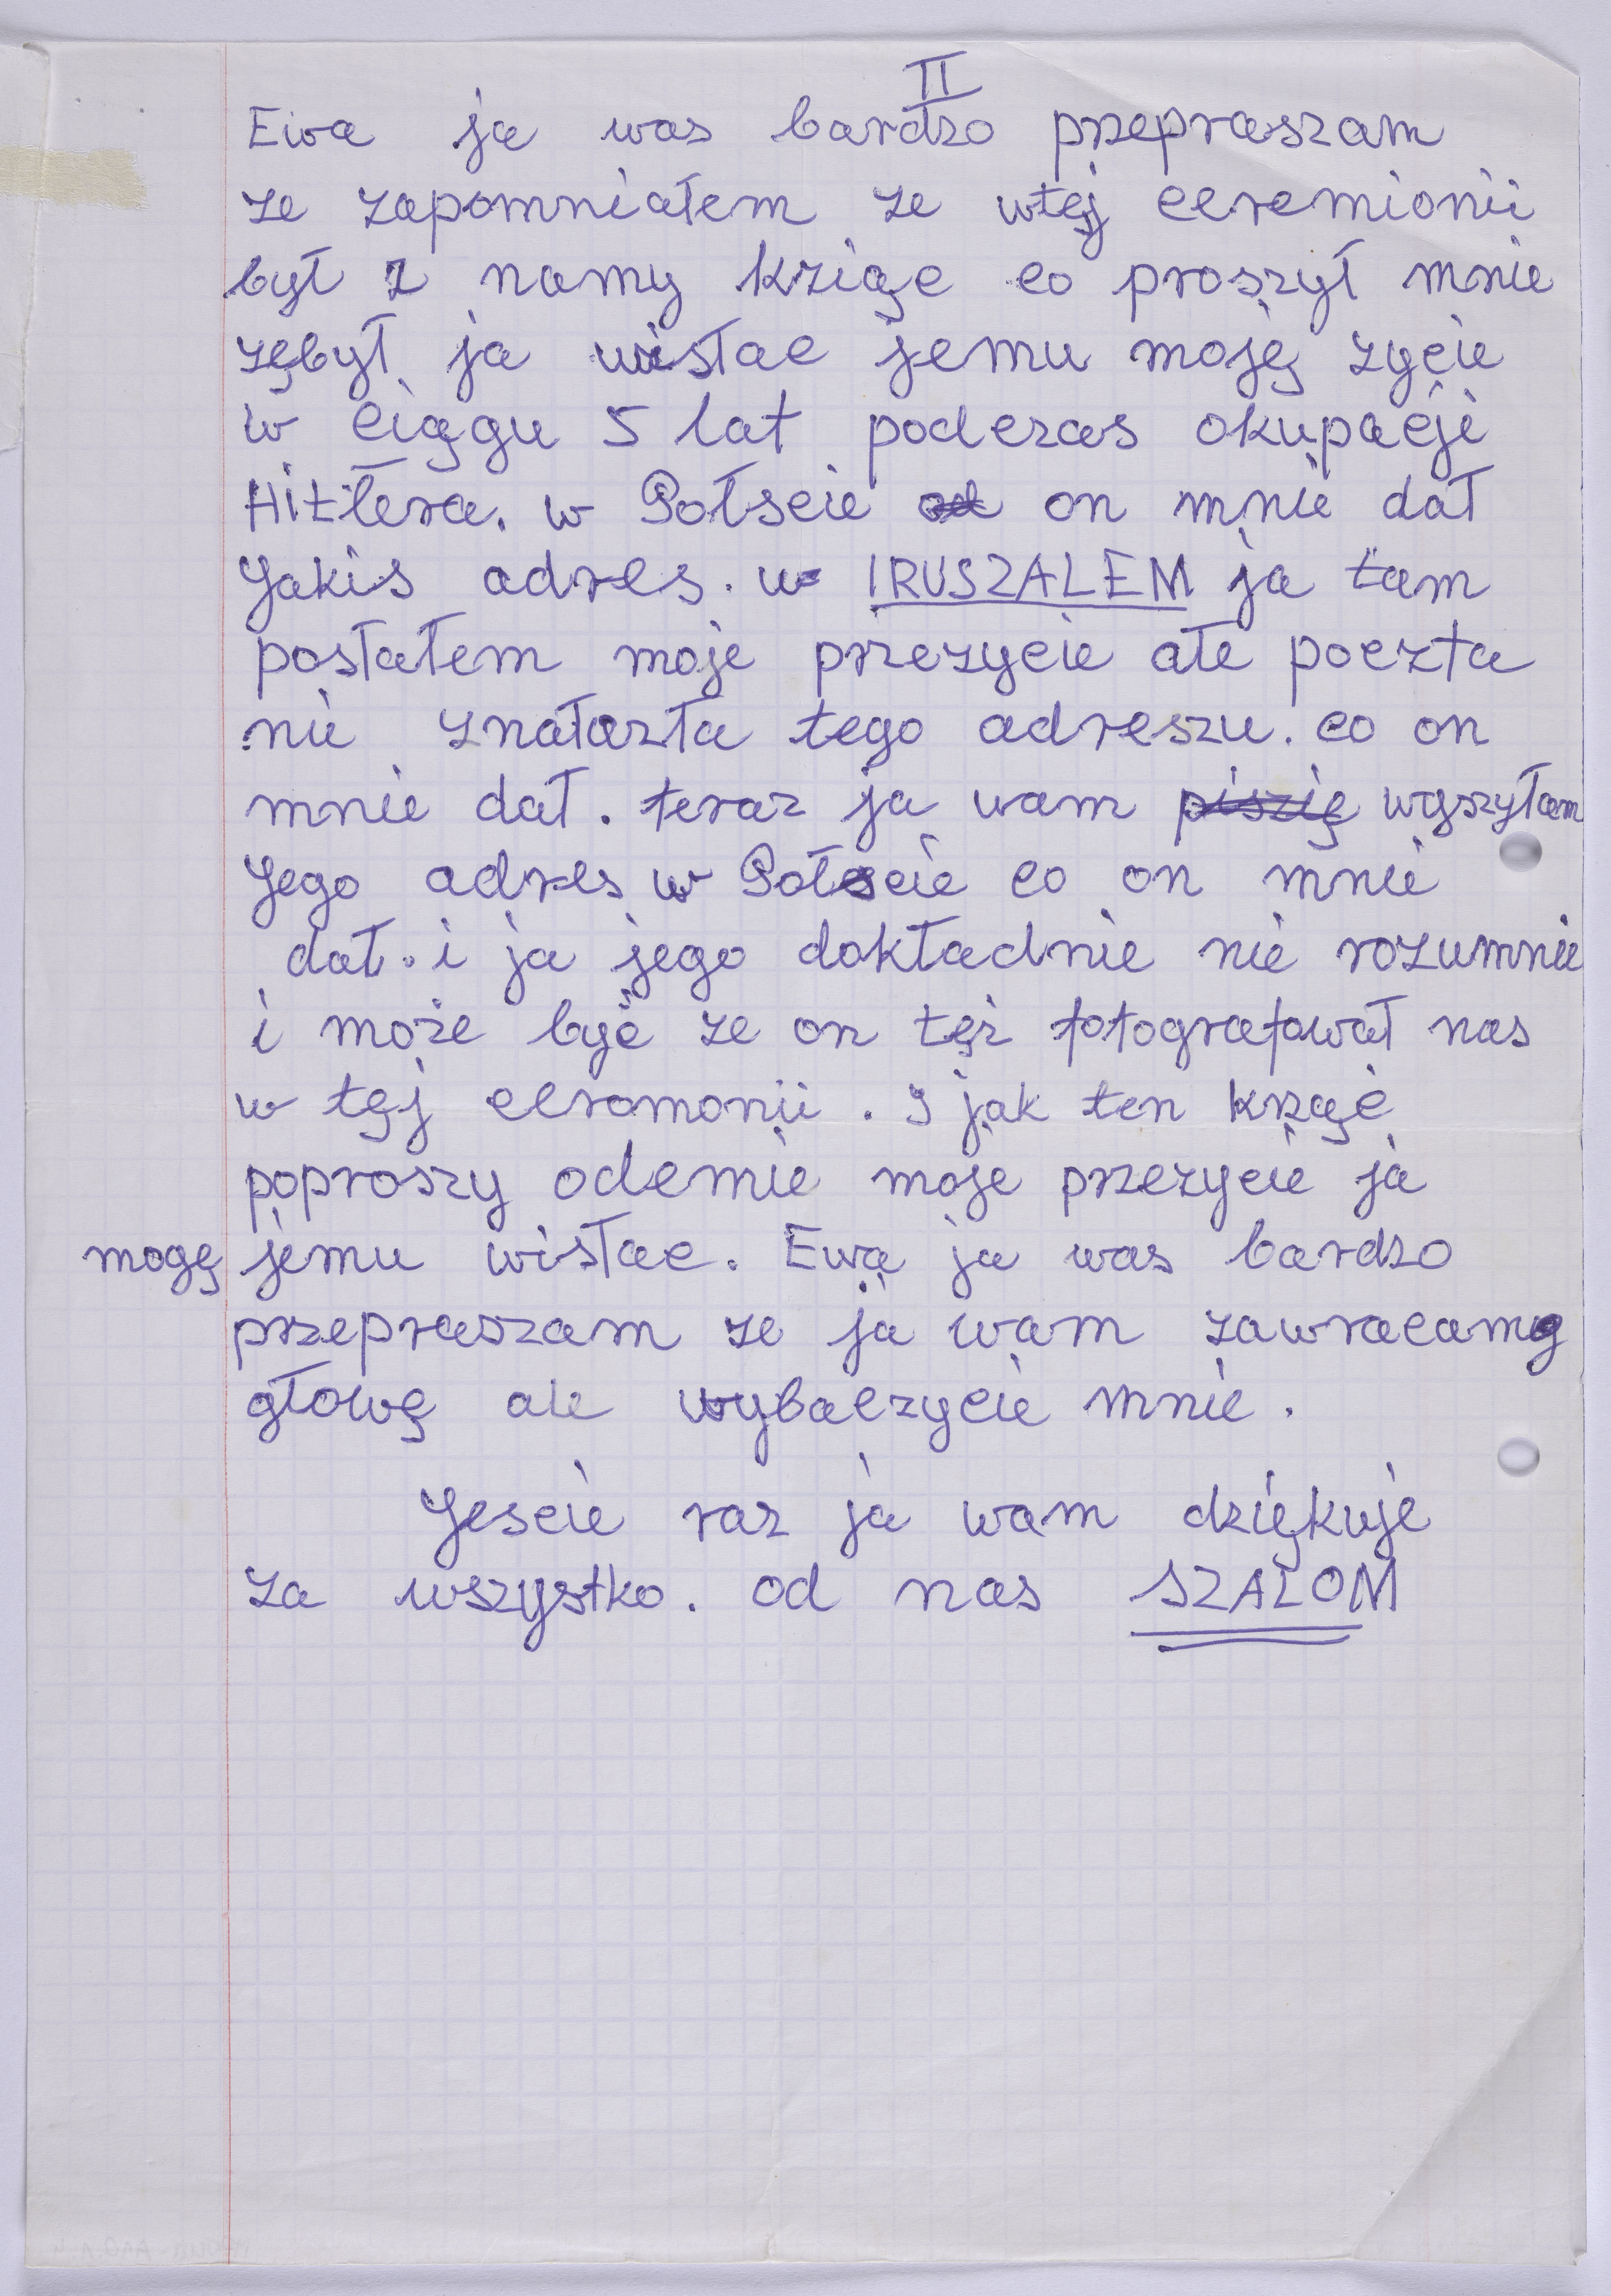 II
Ewa ja was bardzo przepraszam
ze zapomniałem ze wtęj ceremionii
był z namy kziąc co proszył mnie
zębył ja wisłac jemu moję zycie
w ciągu 5 lat podczas okupacji
Hitłera. w Połscie on mnie dał
Jakis adres. w IRUSZALEM ja tam
posłałem moje przezycie ałe poczta
nie znałazła tego adreszu. co on
mnie dał. teraz ja wam piszię wyszyłam
Jego adres w Połscie co on mnie
dał. i ja jego dokładnie nie rozumnie
i może byc ze on tęż fotografował nas
w tęj ceromonii. I jak ten kząc
poproszy odemie moje przezycie ja
mogę jemu wisłac. Ewa ja was bardzo
przepraszam ze ja wam zawracamy
głowę ale wybaczycie mnie.
Jescie raz ja wam dziękuje
za wszystko. od nas SZALOM